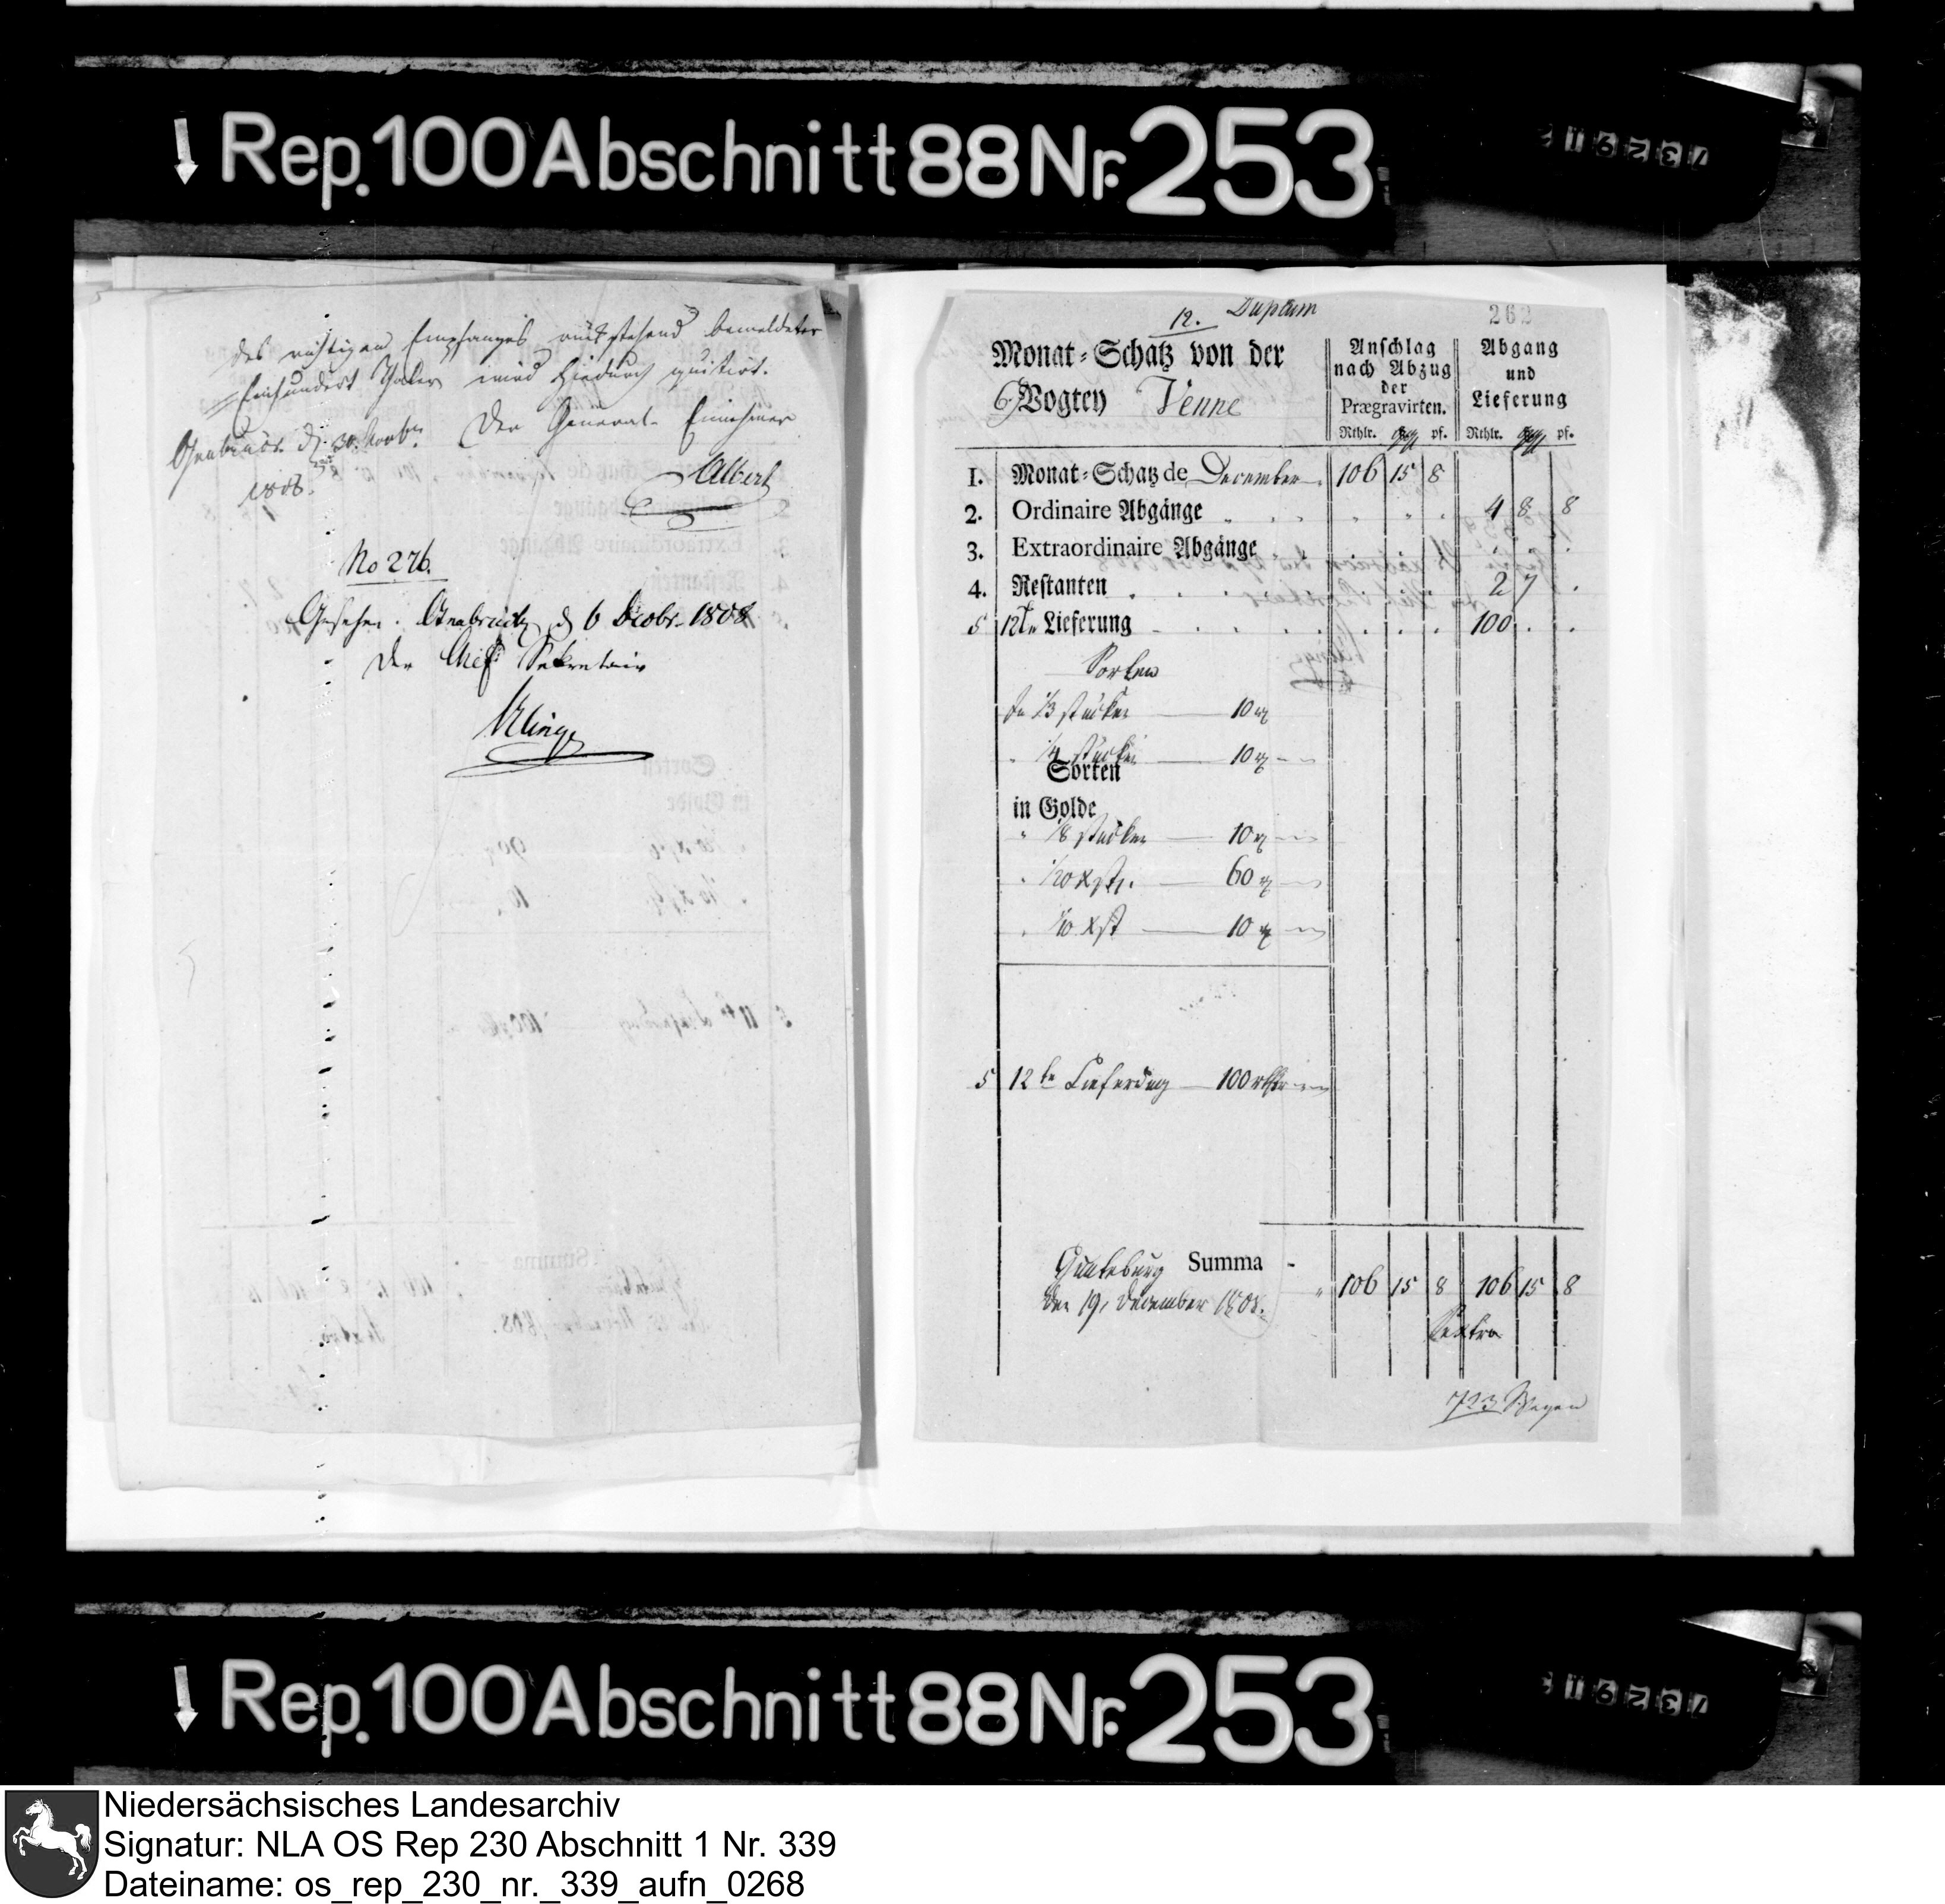 Rep. 100 Abschnitt 88 Nr. 253
des richtigen Empfanges rückstehend bemeldeter
Einhundert Thaler wird hiedurch quitiert.
Osnabrück d. 30. Novbr. Der General-Einnehmer
1808.
Albert
No 276.
Gesehen. Osnabrück d 6 Decbr. 1808
Der Chef Sekretair
Klinge
12. Duplum
262
Monat-Schatz von der
6. Vogtey Venne
Anschlag
nach Abzug
der
Prægravirten.
Rthlr. pf.
Abgang
und
Lieferung
Rthlr. pf.
1. Monat-Schatz de December 106 15 8
2. Ordinaire Abgänge 4 8 8
3. Extraordinaire Abgänge
4. Restanten 2 7
5 12te Lieferung 100
Sorten
In 1/3 stücker 10
1/4 stücker 10
Sorten
in Golde
1/8 stücker 10
1/20 60
1/10 10
5 12te Lieferung 100 rthlr
Hunteburg Summa 106 15 8 106 15 8
den 19. December 1808.
Rep. 100 Abschnitt 88 Nr. 253
Niedersächsisches Landesarchiv
Signatur: NLA OS Rep 230 Abschnitt 1 Nr. 339
Dateiname: os_rep_230_nr._339_aufn_0268